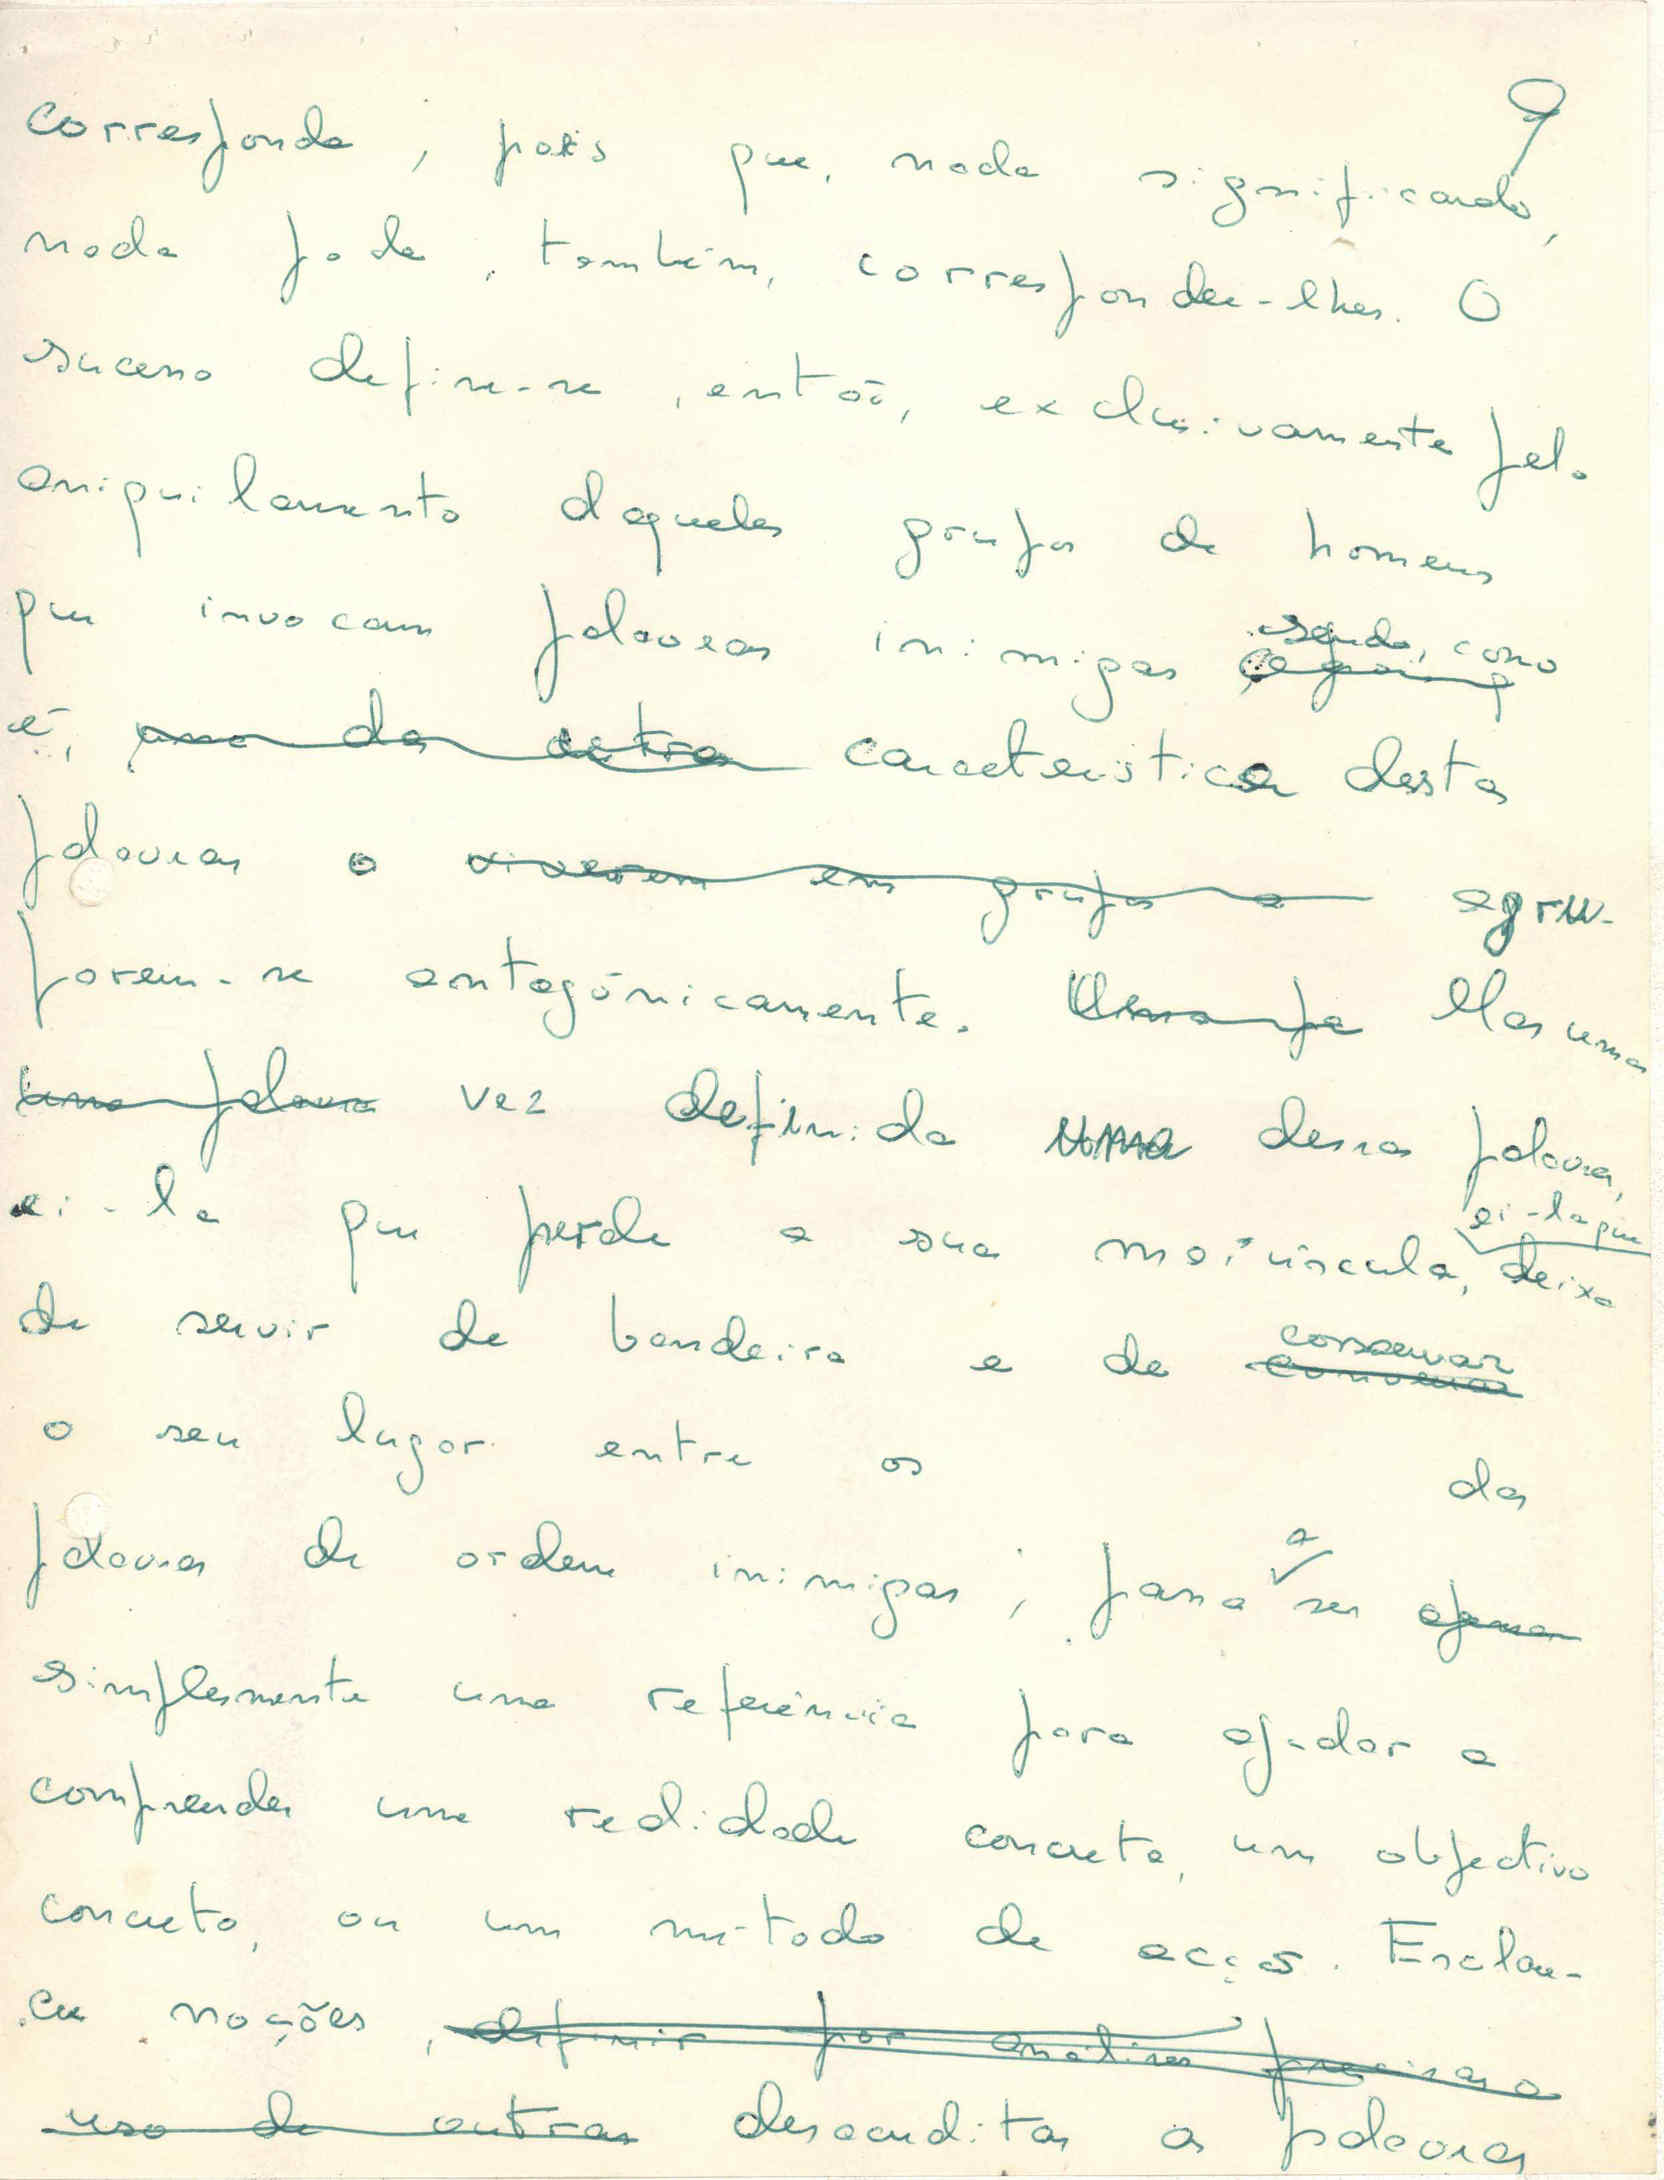 9
corresponda, pois que, nada significando,
nada pode, também, corresponder-lhes. O
sucesso define-se, então, exclusivamente pelo
aniquilamento daqueles grupos de homens
que invocam palavras inimigas
sendo, como
é, uma da outra característica destas
palavras o viverem em grupos e agru-
parem-se antagónicamente. Uma pa Mas uma
uma palavra vez definida uma dessas palavras,
ei-la que perde a sua maiúscula, deixa
ei-la que
de servir de bandeira e de
conservar
o seu lugar entre os das
palavras de ordem inimigas; passa a ser apenas
simplesmente uma referência para ajudar a
compreender uma realidade concreta, um objectivo
concreto, ou um método de acção. Esclare-
cer noções, definir por análises precisas o
uso de outras desacreditar as palavras